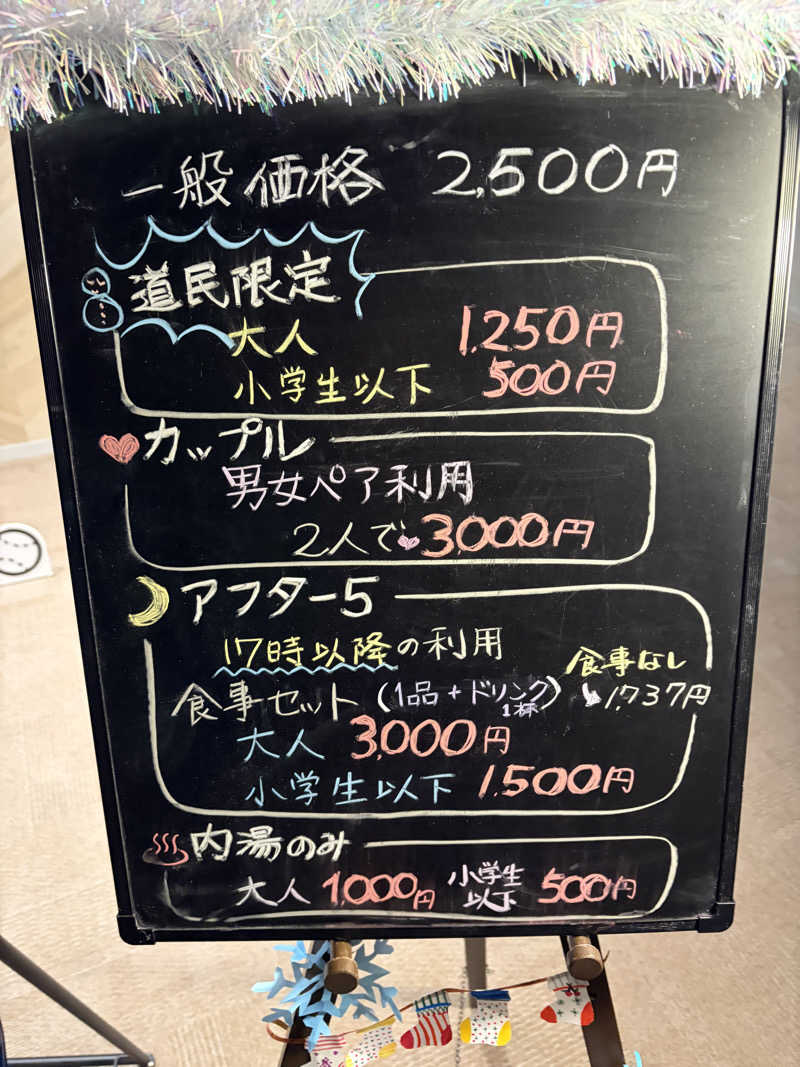 一般価格 2,500円
道民限定
大人 1,250円
小学生以下 500円
カップル
男女ペア利用
2人で 3,000円
アフター5
17時以降の利用
食事なし
食事セット(1品+ドリンク1杯) 1,737円
大人 3,000円
小学生以下 1,500円
内湯のみ
大人 1,000円 小学生以下 500円